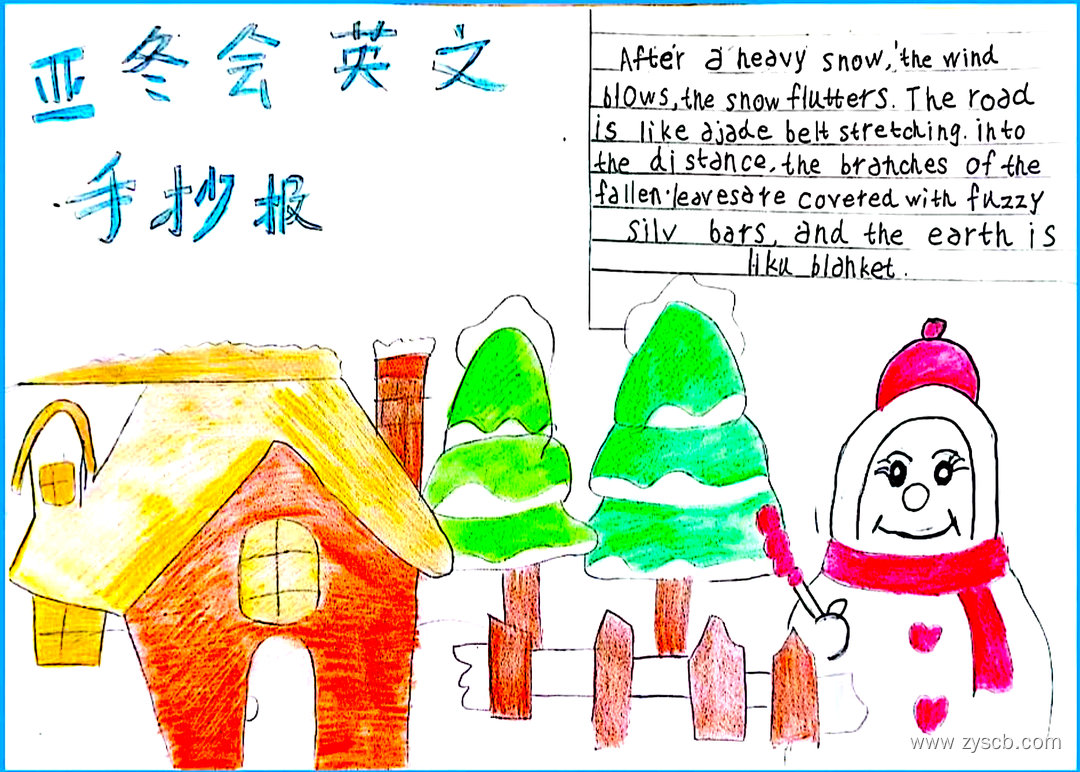 亚冬会英文
手抄报
After a heavy snow, the wind
blows, the snow flutters. The road
is like ajade belt stretching. into
the distance, the branches of the
fallen leavesare covered with fuzzy
silv bars, and the earth is
liku blanket.
www.zyscb.com